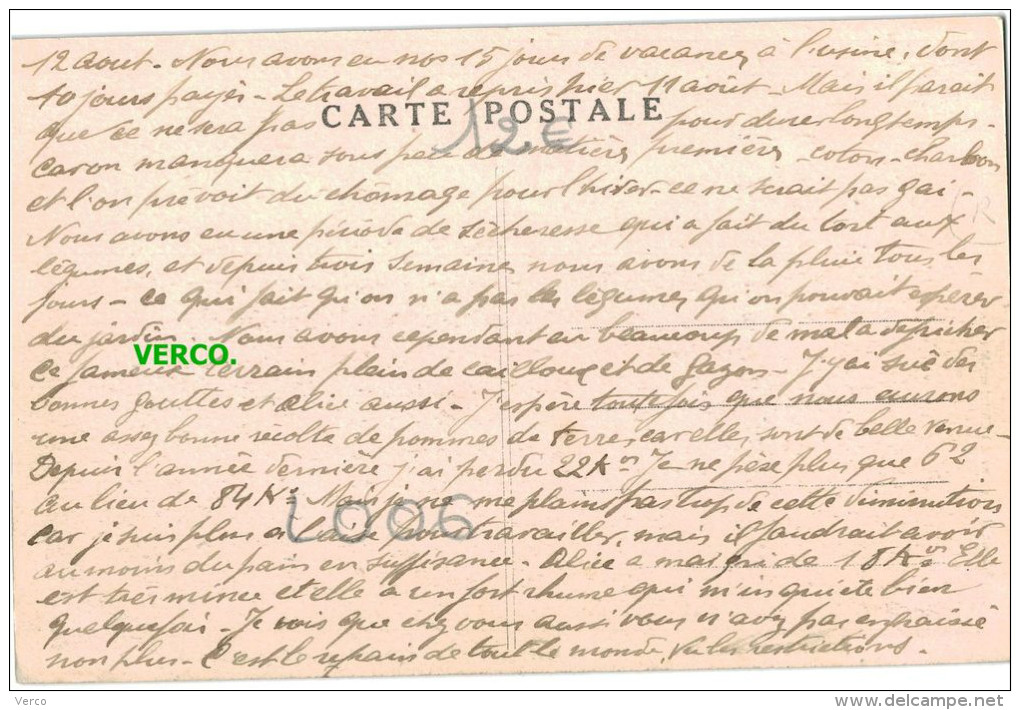 12 aout - Nous avons eu nos 15 jours de vacances à l'usine, dont
10 jours payés - Le travail a repris hier 11 août - Mais il parait
CARTE POSTALE
que ce ne sera pas pour durer longtemps -
12€
car on manquera sous peu de matières premières - coton - charbon
et l'on prévoit du chômage pour l'hiver - ce ne serait pas gai -
R
Nous avons eu une période de sécheresse qui a fait du tort aux
légumes, et depuis trois semaines nous avons de la pluie tous les
jours - ce qui fait qu'on n'a pas les légumes qu'on pouvait espérer
du jardin - Nous avons cependant eu beaucoup de mal a défricher
VERCO.
ce fameux terrain plein de cailloux et de gazon - J'y ai sué des
bonnes gouttes et Alice aussi - J'espère toutefois que nous aurons
une assez bonne récolte de pommes de terre, car elles sont de belle venue -
Depuis l'année dernière j'ai perdu 22 Kos Je ne pèse plus que 62
au lieu de 84 Ks Mais je ne me plains pas trop de cette diminution
L006
car je suis plus a l'aise pour travailler, mais il faudrait avoir
au moins du pain en suffisance - Alice a maigri de 18 Kos Elle
est très mince et elle a un fort rhume qui m'inquiète bien
quelquefois - Je vois que chez vous aussi vous n'avez pas engraissé
non plus - C'est le refrain de tout le monde, vu les restrictions.
Verco
http://verco.delcampe.net